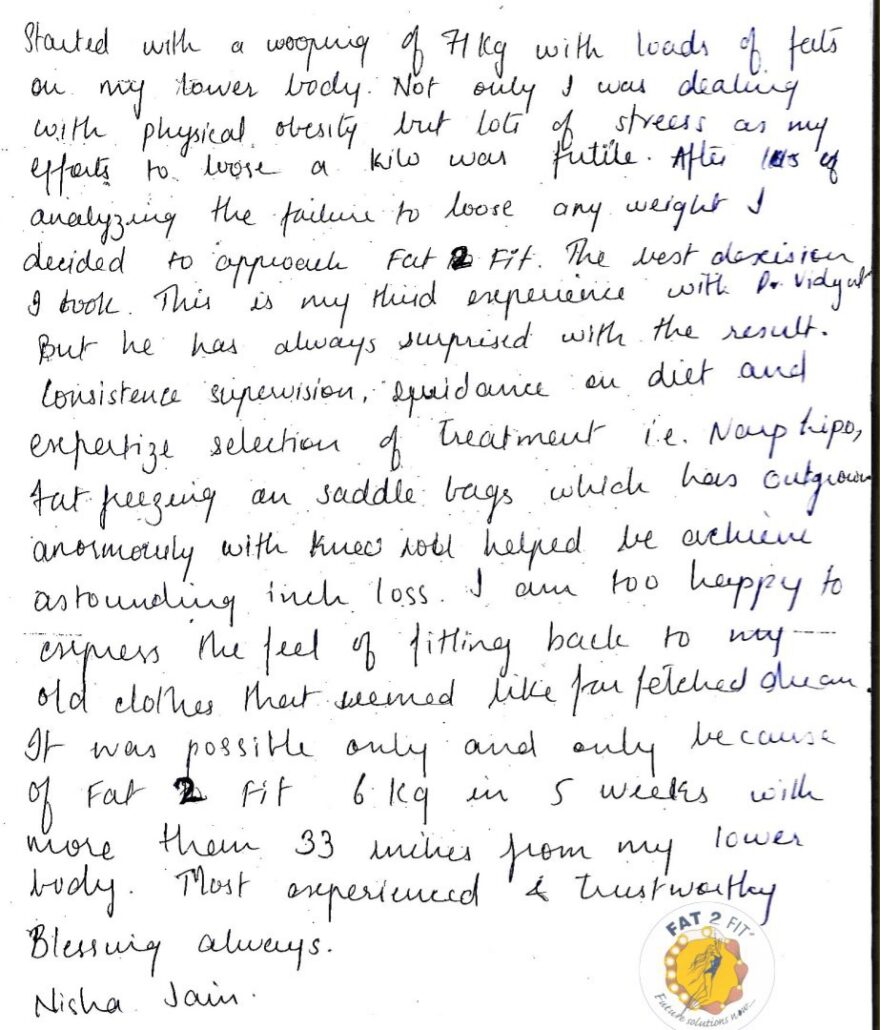 Started with a wooping of 71 Kg with loads of fats
on my lower body. Not only I was dealing
with physical obesity but lots of streess as my
efforts to loose a kilo was futile. After lots of
analyzing the failure to loose any weight I
decided to approach Fat 2 Fit. The best descision
I took. This is my third experience with Dr. Vidyut
But he has always surprised with the result.
Consistence supervision, guidance on diet and
expertize selection of Treatment i.e.
fat freezing on saddle bags which has outgrown
anormously with helped be achieve
astounding inch loss. I am too happy to
express the feel of fitting back to my
old clothes that seemed like far fetched dream.
It was possible only and only because
of Fat 2 Fit 6 Kg in 5 weeks with
more than 33 inches from my lower
body. Most experienced & trustworthy
Blessing always.
Nisha Jain.
FAT 2 FIT
Future solutions now...